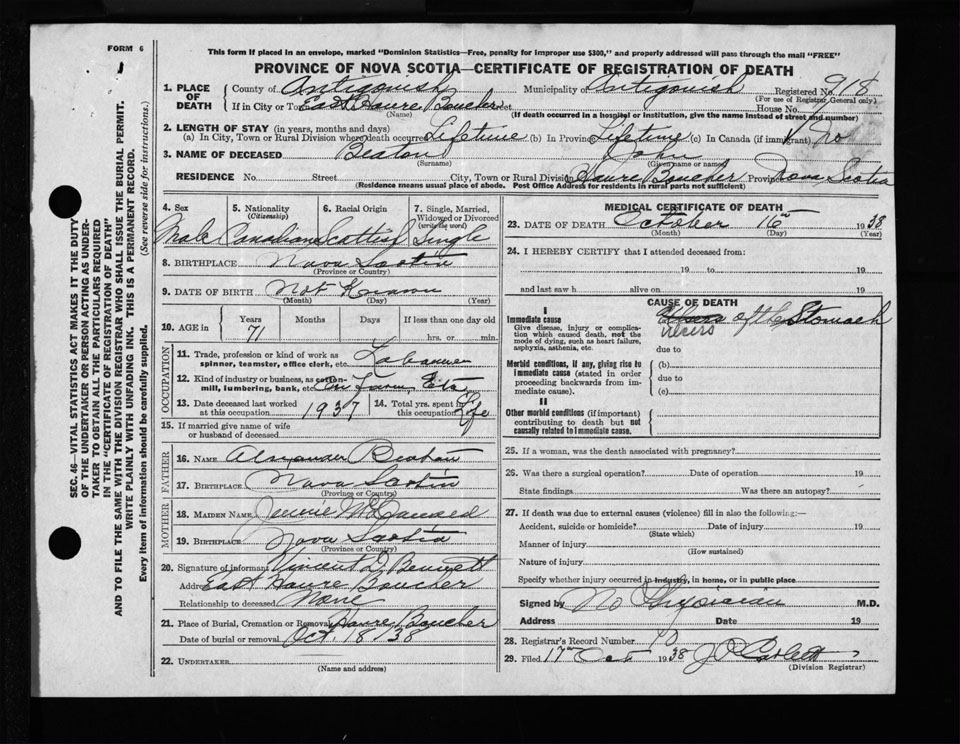 FORM 6
This form if placed in an envelope, marked "Dominion Statistics—Free, penalty for improper use $300," and properly addressed will pass through the mail "FREE"
PROVINCE OF NOVA SCOTIA—CERTIFICATE OF REGISTRATION OF DEATH
1. PLACE OF DEATH County of Antigonish Municipality of Antigonish Registered No. 918
(For use of Registrar General only)
If in City or Town East Havre Boucher Street House No.
(Name) (If death occurred in a hospital or institution, give the name instead of street and number)
2. LENGTH OF STAY (in years, months and days)
(a) In City, Town or Rural Division where death occurred Lifetime (b) In Province Lifetime (c) In Canada (if immigrant)
3. NAME OF DECEASED Beaton John
(Surname) (Given name or names)
RESIDENCE No. Street City, Town or Rural Division Havre Boucher Province Nova Scotia
(Residence means usual place of abode. Post Office Address for residents in rural parts not sufficient)
4. Sex 5. Nationality 6. Racial Origin 7. Single, Married,
(Citizenship) Widowed or Divorced
(write the word)
Male Canadian Scottish Single
8. BIRTHPLACE Nova Scotia
(Province or Country)
9. DATE OF BIRTH Not Known
(Month) (Day) (Year)
10. AGE in Years Months Days If less than one day old
71 hrs. or min.
OCCUPATION
11. Trade, profession or kind of work as
spinner, teamster, office clerk, etc.
12. Kind of industry or business, as cotton-
mill, lumbering, bank, etc. On Farm, Etc
13. Date deceased last worked
at this occupation 1937
14. Total yrs. spent in
this occupation Life
15. If married give name of wife
or husband of deceased
FATHER
16. NAME Alexander Beaton
17. BIRTHPLACE Nova Scotia
(Province or Country)
MOTHER
18. MAIDEN NAME Jennie
19. BIRTHPLACE Nova Scotia
(Province or Country)
20. Signature of informant Vincent D Bennett
Address East Havre Boucher
Relationship to deceased None
21. Place of Burial, Cremation or Removal Havre Boucher
Date of burial or removal Oct. 18/38
22. UNDERTAKER
(Name and address)
MEDICAL CERTIFICATE OF DEATH
23. DATE OF DEATH October 16th 1938
(Month) (Day) (Year)
24. I HEREBY CERTIFY that I attended deceased from:
19 to 19
and last saw h alive on 19
CAUSE OF DEATH
I
Immediate cause
Give disease, injury or complica-
tion which caused death, not the
mode of dying, such as heart failure,
asphyxia, asthenia, etc.
(a) of the Stomach
Ulcers
due to
Morbid conditions, if any, giving rise to
immediate cause (stated in order
proceeding backwards from im-
mediate cause).
(b)
due to
(c)
II
Other morbid conditions (if important)
contributing to death but not
causally related to immediate cause.
25. If a woman, was the death associated with pregnancy?
26. Was there a surgical operation? Date of operation 19
State findings Was there an autopsy?
27. If death was due to external causes (violence) fill in also the following:—
Accident, suicide or homicide? Date of injury 19
(State which)
Manner of injury
(How sustained)
Nature of injury
Specify whether injury occurred in industry, in home, or in public place
Signed by No Physician M.D.
Address Date 19
28. Registrar's Record Number 10
29. Filed 17th Oct 1938 J O Corbett
(Division Registrar)
SEC. 46—VITAL STATISTICS ACT MAKES IT THE DUTY
OF THE UNDERTAKER OR PERSON ACTING AS UNDER-
TAKER TO OBTAIN ALL THE PARTICULARS REQUIRED
IN THE "CERTIFICATE OF REGISTRATION OF DEATH"
AND TO FILE THE SAME WITH THE DIVISION REGISTRAR WHO SHALL ISSUE THE BURIAL PERMIT.
WRITE PLAINLY WITH UNFADING INK. THIS IS A PERMANENT RECORD.
Every item of information should be carefully supplied. (See reverse side for instructions.)